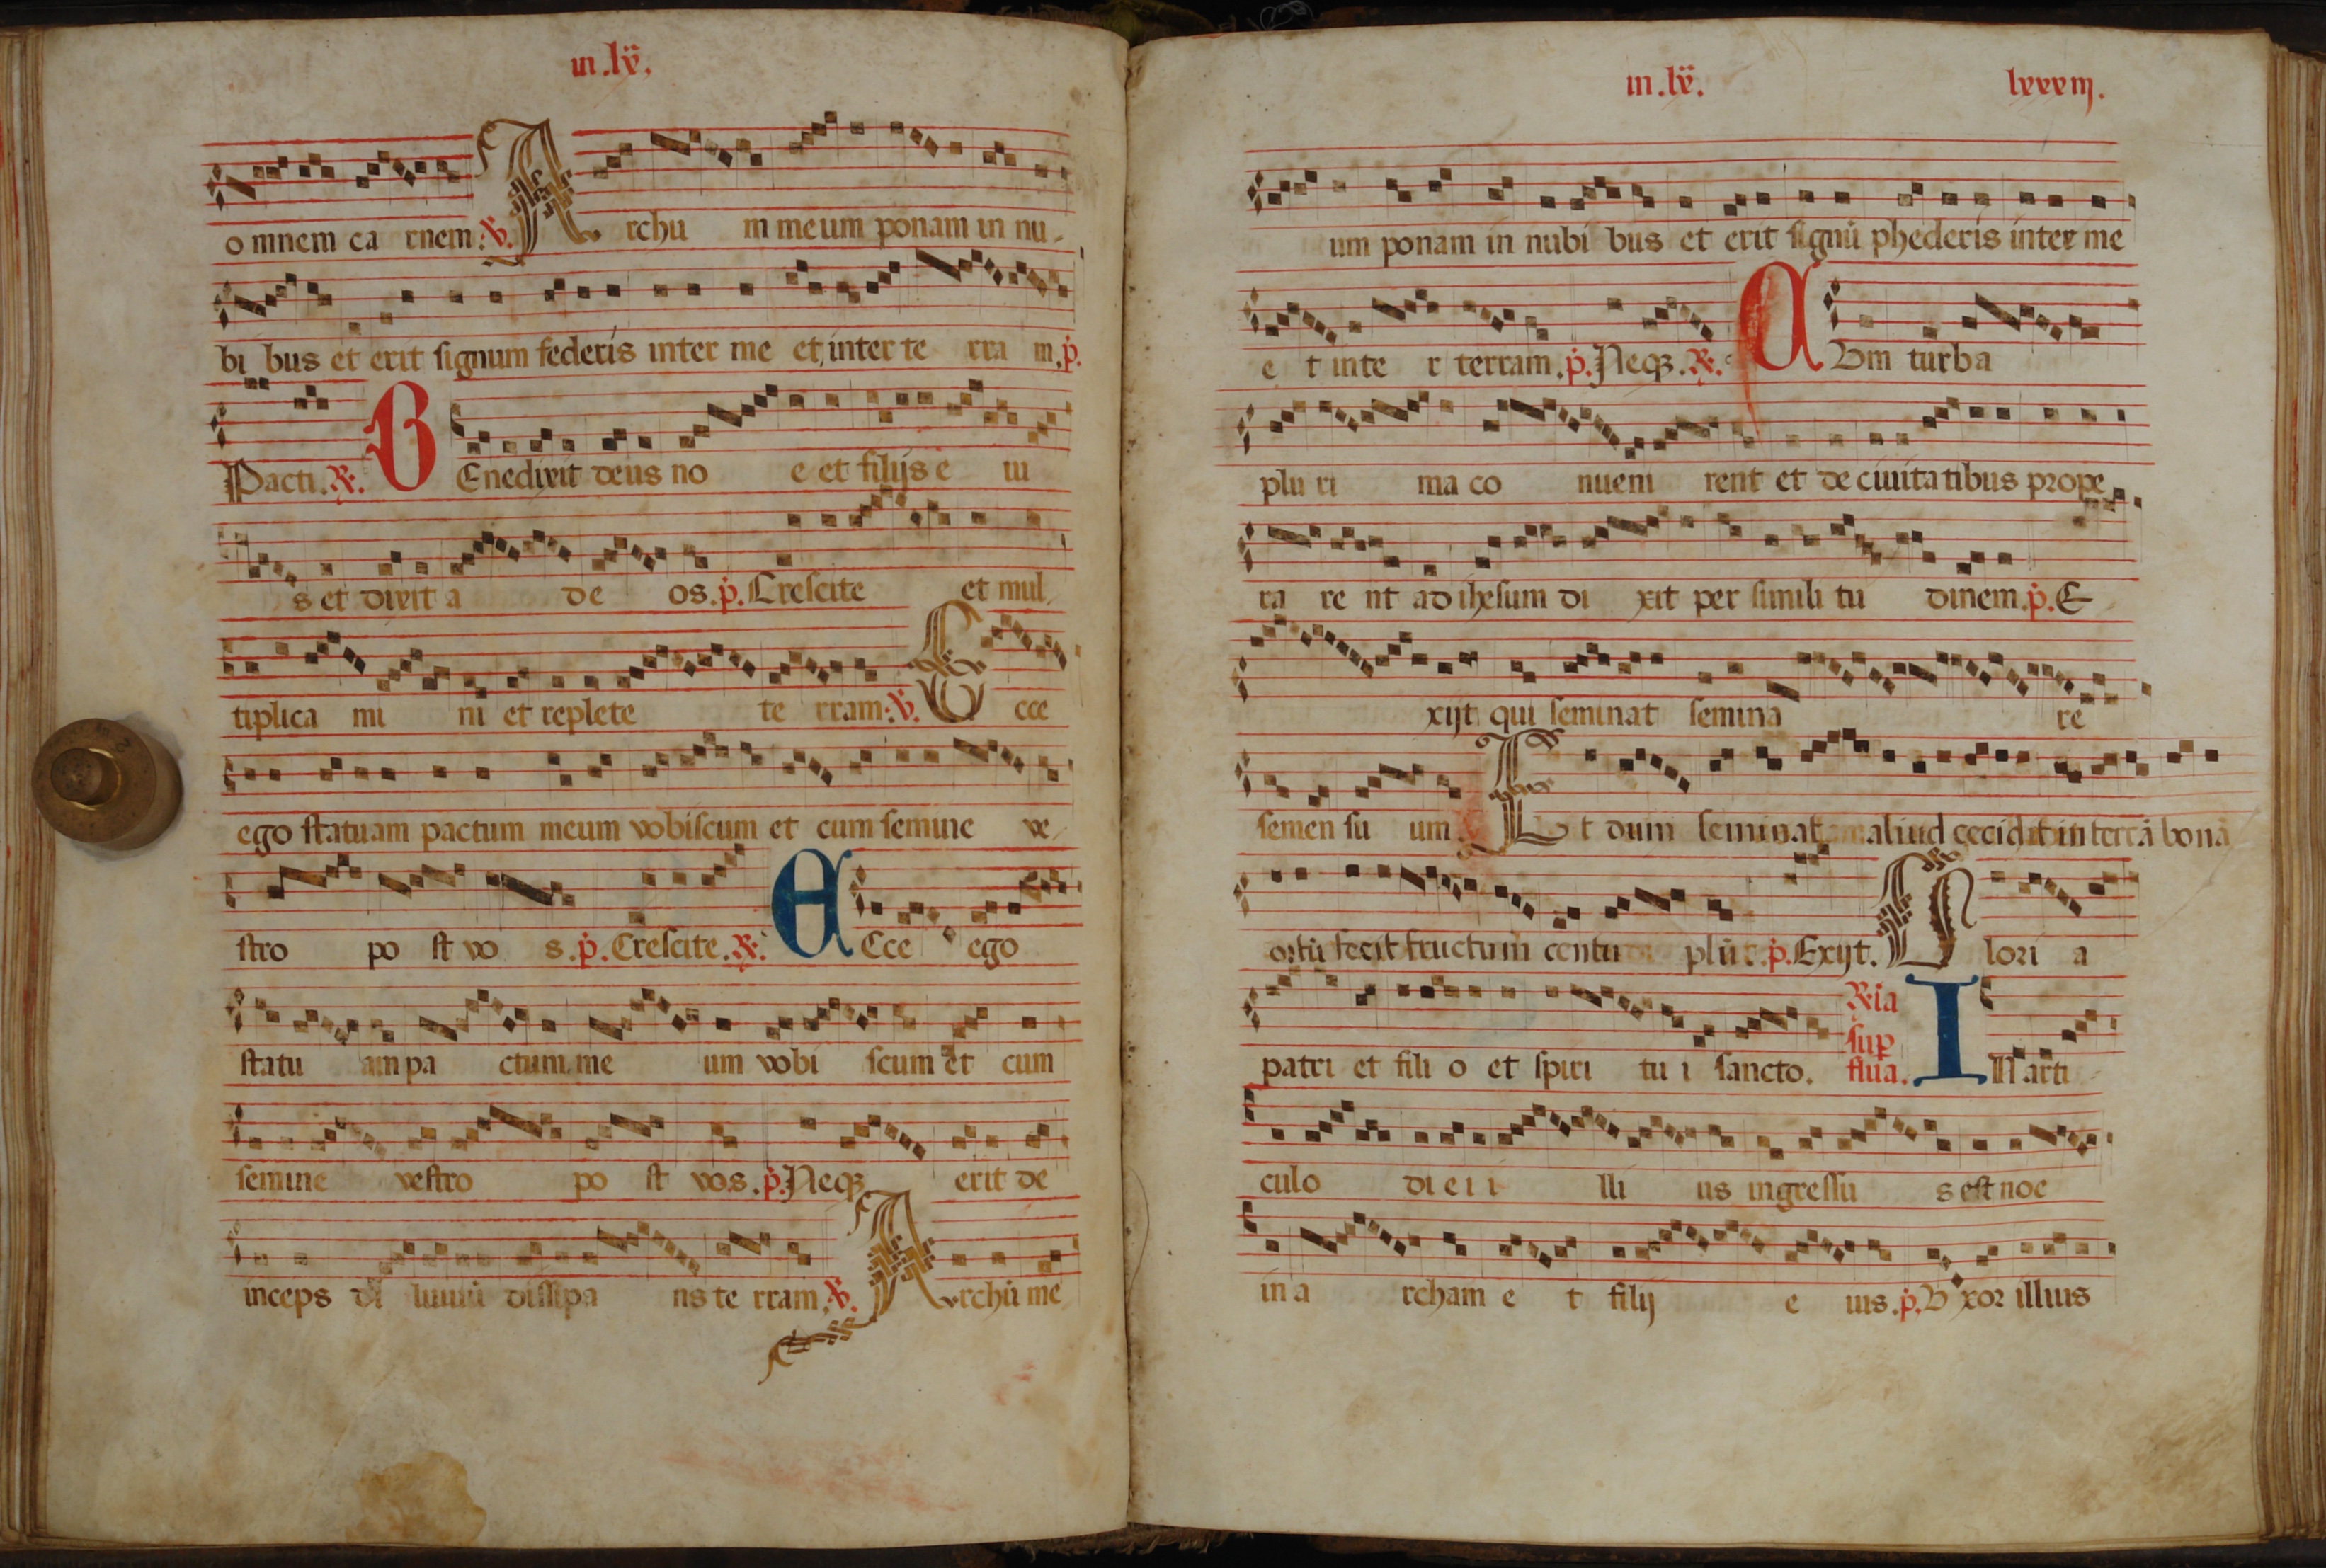 in .lx̄.
omnem ca rnem. V. Archu m meum ponam in nu-
bi bus et erit signum federis inter me et inter te rra m. p.
Pacti. R. BEnedixit deus no e et filijs e iu
s et dixit a de os. p. Crescite et mul
tiplica mi ni et replete te rram. V. Ecce
ego statuam pactum meum vobiscum et cum semine ve-
stro po st vo s. p. Crescite. R. ECce ego
statu am pa ctum me um vobi scum et cum
semine vestro po st vos. p. Neqȝ erit de
inceps di luuiū dissipa ns te rram. V. Archū me
in .lx̄. lxxxiij.
um ponam in nubi bus et erit signū phederis inter me
e t inte r terram. p. Neqȝ. R. CUm turba
plu ri ma co nueni rent et de ciuitatibus prope
ra re nt ad ihesum di xit per simili tu dinem. p. E
xijt qui seminat semina re
semen su um. V. Et dum seminat aliud cecidit in terrā bonā
ortū fecit fructum centu plū. p. Exijt. Glori a
patri et fili o et spiri tu i sancto. R̄ia sup̄ flua. IN arti
culo di e i i lli us ingressu s est noe
in a rcham e t filij e ius. p. Uxor illius